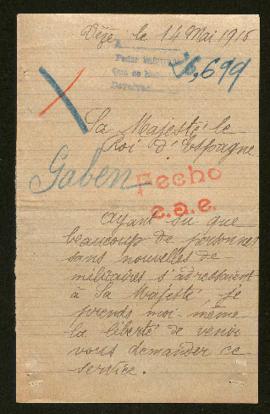 le 14 Mai 1915
6,699
Sa Majesté le
Roi d'Espagne
Gaben
Fecho
e.a.e.
Ayant su que
beaucoup de personnes
sans nouvelles de
militaires s'adressaient
à Sa Majesté, je
prends moi-même
la liberté de venir
vous demander ce
service.